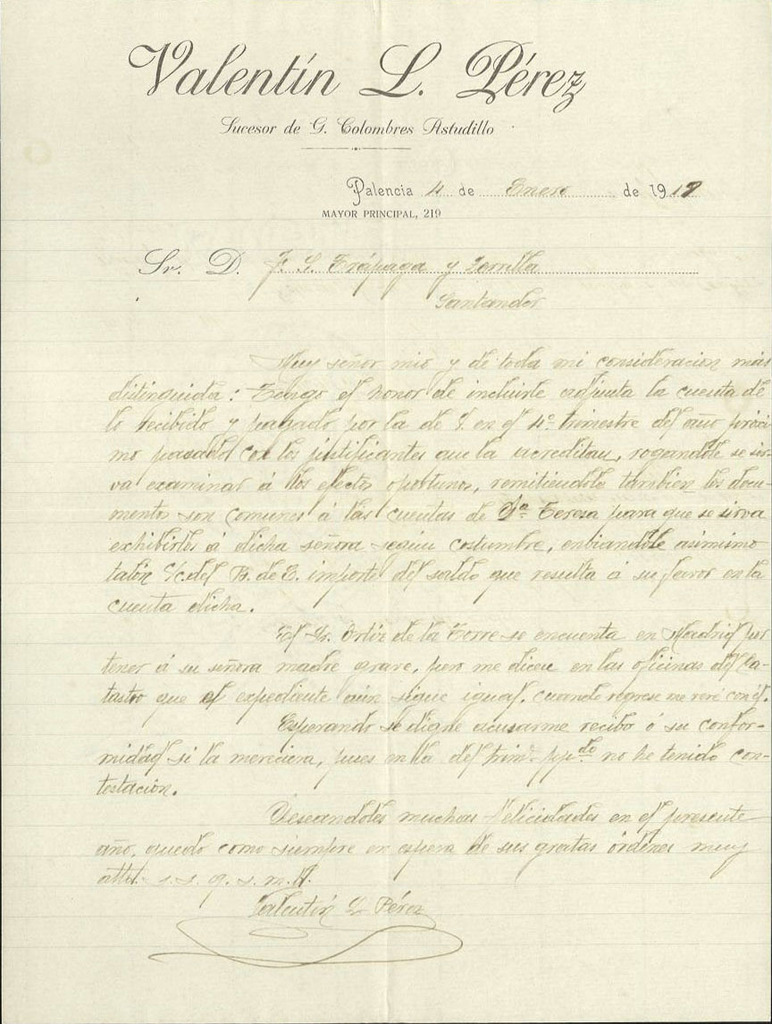 Valentín L. Pérez
Sucesor de G. Colombres Astudillo
Palencia 4 de Enero de 1918
MAYOR PRINCIPAL, 219
Sr. D. F. S. Trápaga y Zorrilla
Santander
Muy señor mio y de toda mi consideracion más
distinguida: Tengo el honor de incluirle adjunta la cuenta de
lo recibido y pagado por la de V. en el 4º trimestre del año próxi-
mo pasado con los justificantes que la acreditan, rogandole se sir-
va examinar á los efectos oportunos, remitiendole tambien los docu-
mentos son comunes á las cuentas de Dª Teresa para que se sirva
exhibirlos á dicha señora según costumbre, enbiandole asimismo
talón c/c del B. de E. importe del saldo que resulta á su favor en la
cuenta dicha.
El Sr. Ortiz de la Torre se encuenta en Madrid por
tener á su señora madre grave, pero me dicen en las oficinas del Ca-
tastro que el expediente aún sigue igual. cuando regrese me veré con él.
Esperando se digne acusarme recibo ó su confor-
midad si la mereciera, pues en la del trim. ppdo no he tenido con-
testación.
Deseandoles muchas felicidades en el presente
año, quedo como siempre en espera de sus gratas órdenes muy
atto. s. s. q. s. m. b.
Valentín L. Pérez